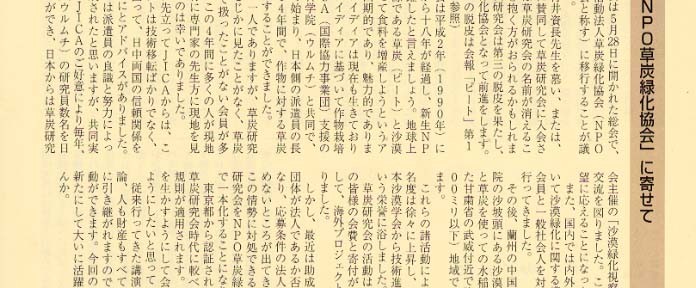 NPO草炭緑化協会」に寄せて
は5月28日に開かれた総会で、
活動法人草炭緑化協会(NPO
会と称す)に移行することが議
井資長先生を慕い、または、
賛同して草炭研究会に入会さ
草炭研究会の名前が消えるこ
を抱く方がおられるかもしれま
研究会は第三の脱皮を果たし、
化協会となって前進をします。
の脱皮は会報「ピート」第1
参照)
は平成2年(1990年)に
ら十八年が経過し、新生NP
したと言えましょう。地球上
である草炭(ピート)と沙漠
て食料を増産しようというア
期的であり、魅力的でありま
イディアは現在も生きており
ィディアに基づいて作物栽培
A(国際協力事業団)支援の
学院(ウルムチ)と共同で、
始まり、日本側の派遣員の長
4年間で、作物に対する草炭
することができました。
一人でありますが、草炭研究
じかに見たことがなく、草炭
扱ったことがない会員が多
この4年間に多くの人が現地
に専門家の先生方に現地を見
のは幸いでありました。
先立ってJICAからは、こ
トは技術移転ばかりでなく、
て、日中両国の信頼関係を
にとアドバイスがありました。
は派遣員の良識と努力によっ
されたと思いますが、共同実
JICAのご好意により毎年、
(ウルムチ)の研究員数名を日
ができ、日本からは草炭研究
会主催の「沙漠緑化視察
交流を図りました。こ
望に応えることになっ
また、国内では内外
いて沙漠緑化に関する
会員と一般社会人を対
行ってきました。
その後、蘭州の中国
院の沙坡頭にある沙漠
と草炭を使っての水稲
た甘粛省の武威付近で
00ミリ以下)地域で
これらの諸活動によ
名度は徐々に上昇し、
本沙漠学会から技術進
いう栄誉に浴しました。
草炭研究会の活動は
の皆様の会費と寄付が
して、海外プロジェクト
りました。
しかし、最近は助成
団体が法人であるか否
なり、応募条件の法人
めないところが出てき
この情勢に対処できる
研究会をNPO草炭緑
で一本化することにな
東京都から認証され
草炭研究会時代に較べ
規則が適用されます。
を生かすようにして会
ようにしたいと思って
従来行ってきた講演
論、人も財産もすべて
に引き継がれますので
動ができます。今回の
新たにして大いに活躍
んか。